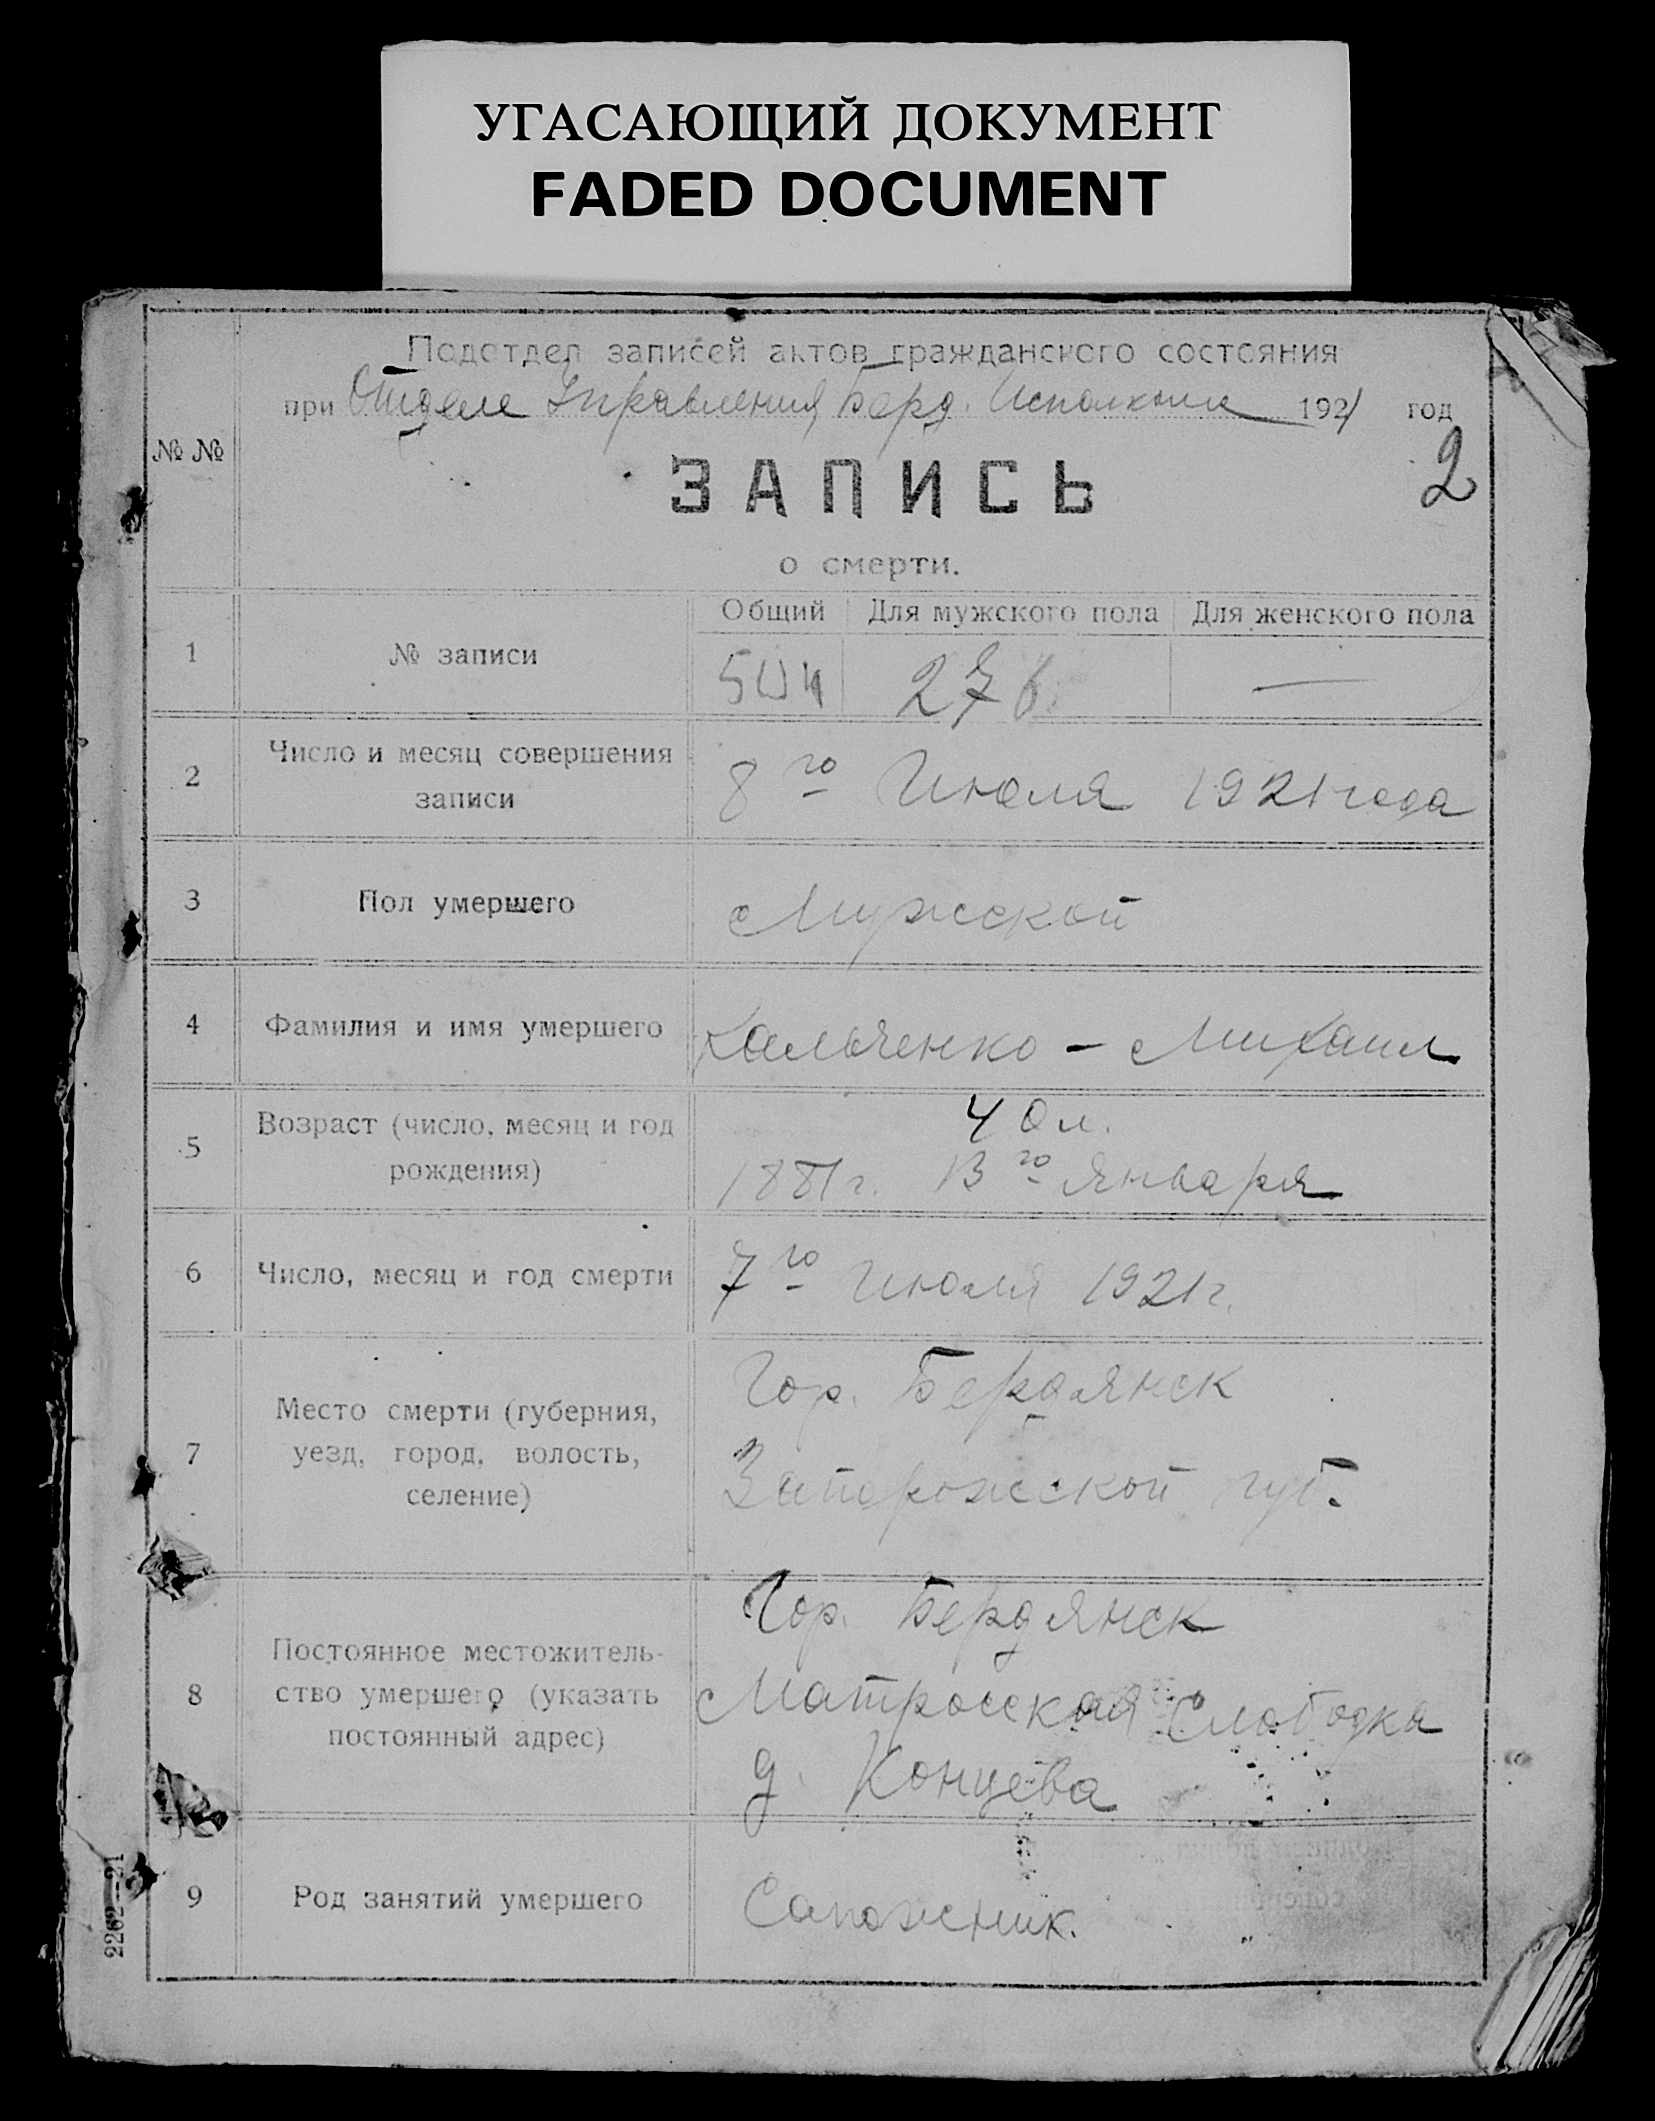 УГАСАЮЩИЙ ДОКУМЕНТ
FADED DOCUMENT
Подотдел записей актов гражданского состояния
при Отделе Управления Берд. Исполкома 1921 год
2
№ №
ЗАПИСЬ
о смерти.
Общий Для мужского пола Для женского пола
1 № записи 504 276. —
2 Число и месяц совершения
записи
8го Июля 1921 года
3 Пол умершего Мужской
4 Фамилия и имя умершего Кальченко – Михаил
5 Возраст (число, месяц и год
рождения)
40 л.
1881 г. 13го Января
6 Число, месяц и год смерти 7го Июля 1921 г.
7 Место смерти (губерния,
уезд, город, волость,
селение)
Гор. Бердянск
Запорожской губ.
8 Постоянное местожитель-
ство умершего (указать
постоянный адрес)
Гор. Бердянск
Матросская Слободка
д. Концева
9 Род занятий умершего Сапожник.
2262—21